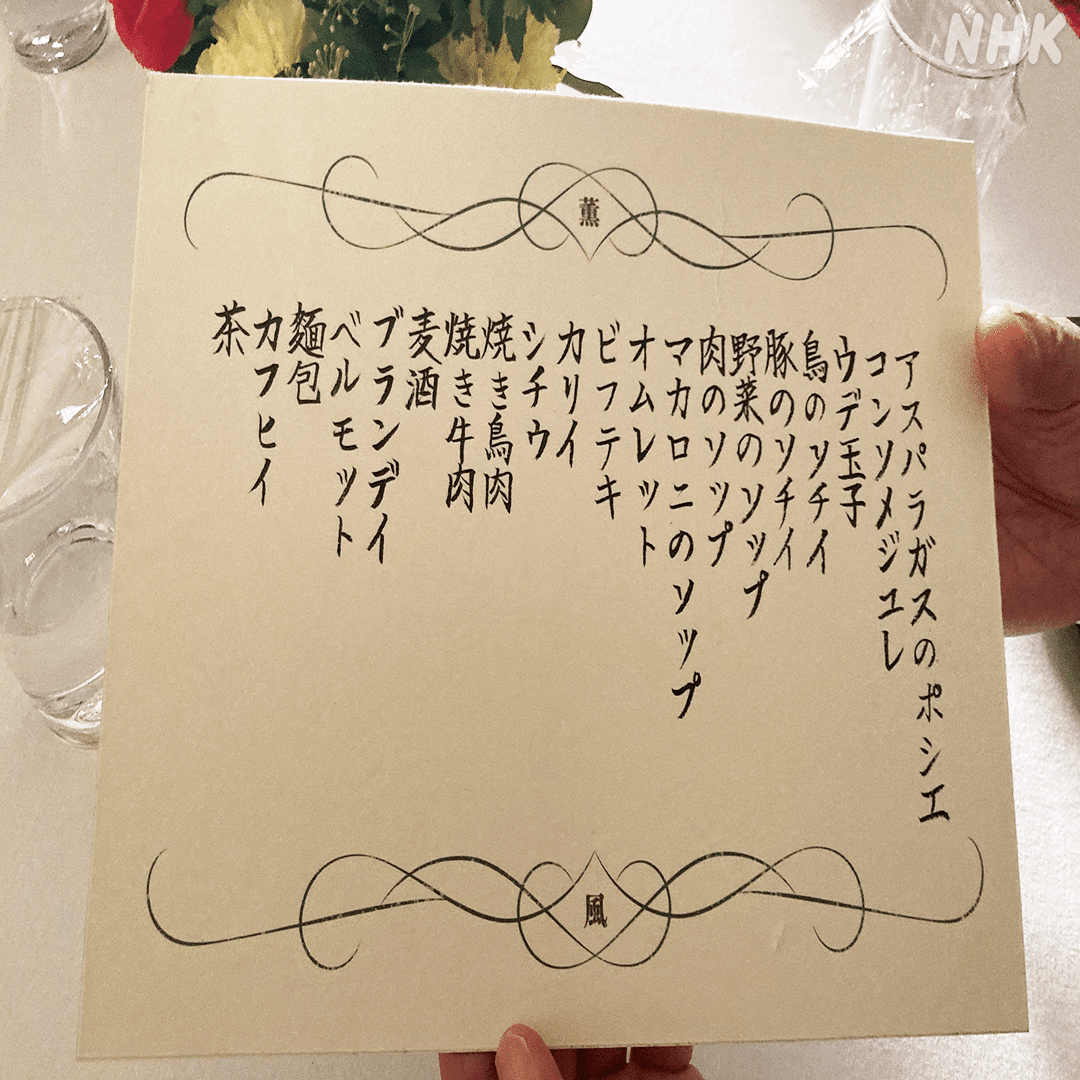 NHK
薫
アスパラガスのポシエ
コンソメジユレ
ウデ玉子
鳥のソチイ
豚のソチイ
野菜のソップ
肉のソップ
マカロニのソップ
オムレット
ビフテキ
カリイ
シチウ
焼き鳥肉
焼き牛肉
麦酒
ブランデイ
ベルモット
麺包
カフヒイ
茶
風